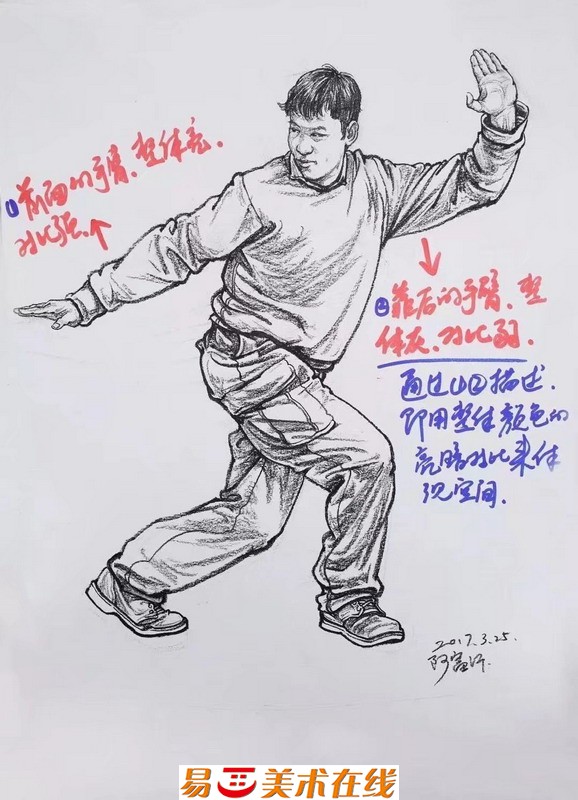 ①前面的手臂、整体亮、
对比强、↑
②靠后的手臂、整
体灰、对比弱.
通过①②描述.
即用整体颜色的
亮暗对比来体
现空间.
2017.3.25.
易 美术在线